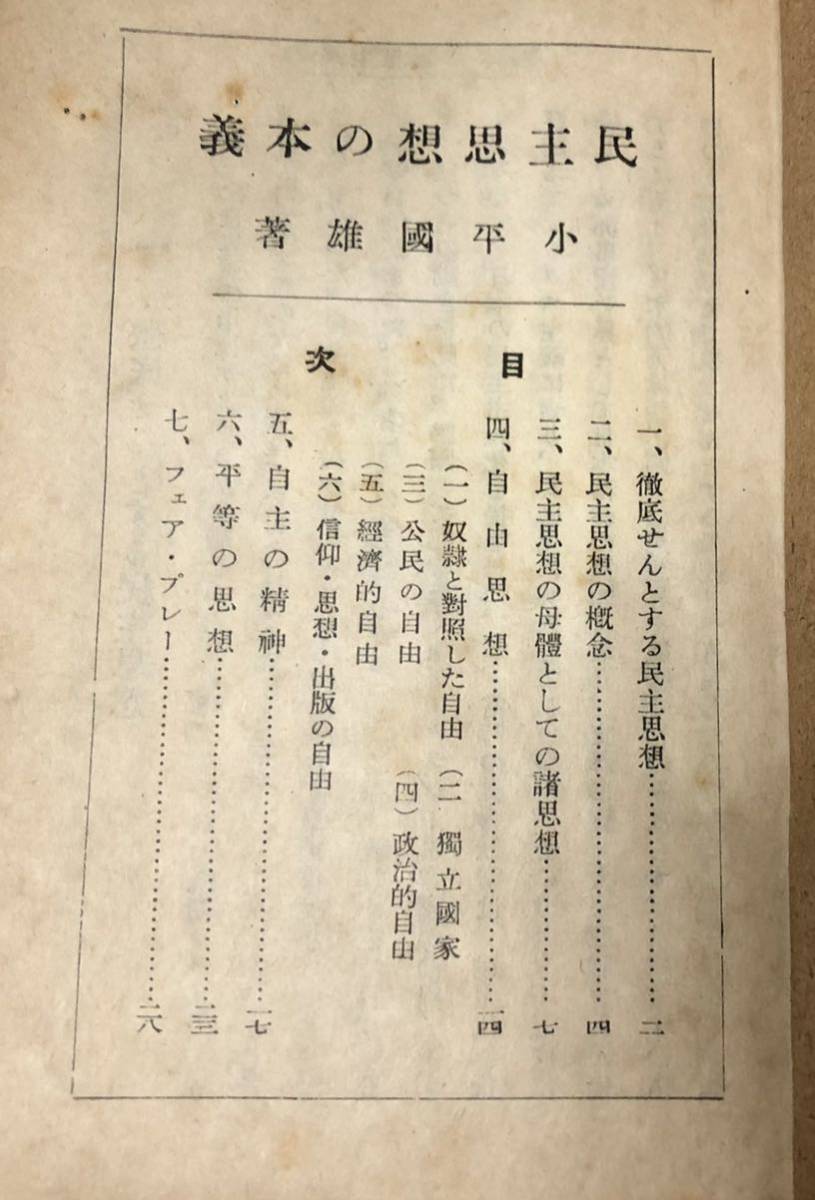 民主思想の本義
小平國雄著
目次
一、徹底せんとする民主思想……………………二
二、民主思想の概念……………………四
三、民主思想の母體としての諸思想……………七
四、自由思想……………………一四
（一）奴隷と對照した自由　（二　獨立國家
（三）公民の自由　（四）政治的自由
（五）經濟的自由
（六）信仰・思想・出版の自由
五、自主の精神……………………一七
六、平等の思想……………………二三
七、フェア・プレー……………………二八